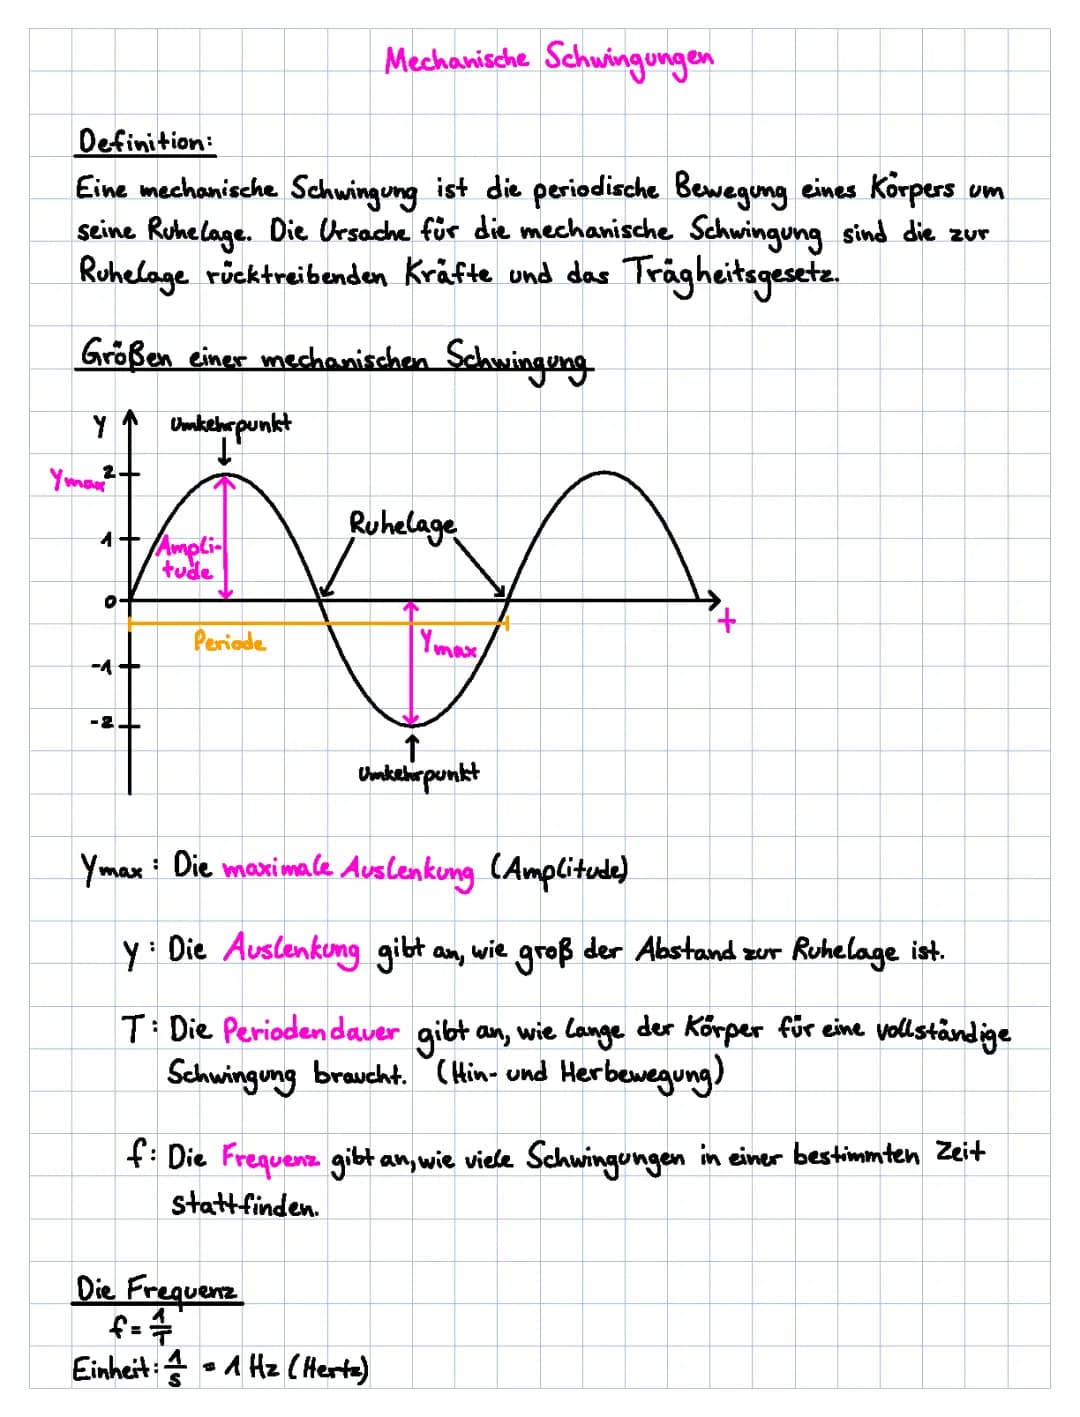 Mechanische Schwingungen
Definition:
Eine mechanische Schwingung ist die periodische Bewegung eines Körpers um
seine Ruhelage. Die Ursache für die mechanische Schwingung sind die zur
Ruhelage rücktreibenden Kräfte und das Trägheitsgesetz.
Größen einer mechanischen Schwingung
y
Umkehrpunkt
Ymax
2
Ruhelage
1
Ampli-
tude
0
t
Periode
Ymax
-1
-2
Umkehrpunkt
Ymax: Die maximale Auslenkung (Amplitude)
y: Die Auslenkung gibt an, wie groß der Abstand zur Ruhelage ist.
T: Die Periodendauer gibt an, wie lange der Körper für eine vollständige
Schwingung braucht. (Hin- und Herbewegung)
f: Die Frequenz gibt an, wie viele Schwingungen in einer bestimmten Zeit
stattfinden.
Die Frequenz
f = 1/T
Einheit: 1/s = 1 Hz (Hertz)